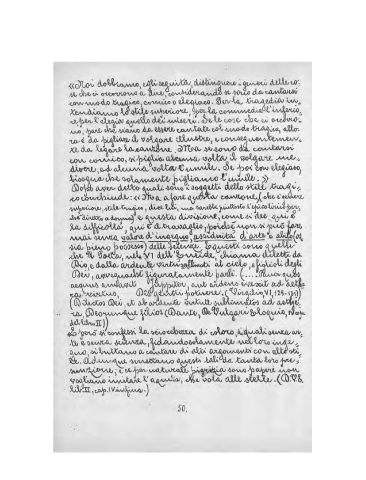 «Noi dobbiamo, egli seguita, distinguere i generi delle co-
se che ci occorrono a dire, considerando se sono da cantarsi
con modo tragico, comico o elegiaco. Per la tragedia in-
tendiamo lo stile superiore, per la commedia l'inferio-
re, per l'elegia quello dei miseri. Se le cose che ci occorro-
no, pare che siano da essere cantate col modo tragico, allo-
ra è da pigliare il volgare illustre, e conseguentemen-
te da legare la canzone. Ma se sono da cantarsi
con comico, si piglia alcuna volta il volgare me-
diocre, ad alcuna volta l'umile. Se poi con elegiaco,
bisogna che solamente pigliamo l'umile.»
Dopo aver detto quali sono i soggetti dello stile tragi-
co conchiude: «Ma, a fare questa canzone (che è
superiore, stile tragico,
e questa divisione, come si dee, qui è
la difficoltà, qui è da travaglio, poiché non si può far
mai senza valore d'ingegno, assiduità d'arte e abito (os-
sia pieno possesso) delle scienze. E questi sono quelli
che il Poeta, nel VI dell'Eneide, chiama diletti da
Dio, e dallo ardente virtù sollevati al cielo, e figlioli degli
Dei, avvegnaché figuratamente parli. (... Pauci quos
aequus amavit Juppiter, aut ardens evexit ad aethe-
ra virtus, Dis geniti potuere. (Virgilio VI, 129-131)
(Dilectos Dei et ab ardente virtute sublimatos ad aethe-
ra Deorumque filios (Dante, De Vulgari Eloquio,
del lib. II))
e però si confessi la sciocchezza di coloro, i quali senza ar-
te e senza scienza, fidandosi solamente nel loro inge-
gno, si buttano a cantare di alti argomenti con alto sti-
le. Adunque smettano questi tali da tanta loro pre-
sunzione; e se per naturale pigrizia sono papere non
vogliano imitare l'aquila, che vola alle stelle. (D.V.E.
lib. II, cap. IV in fine.)
50.